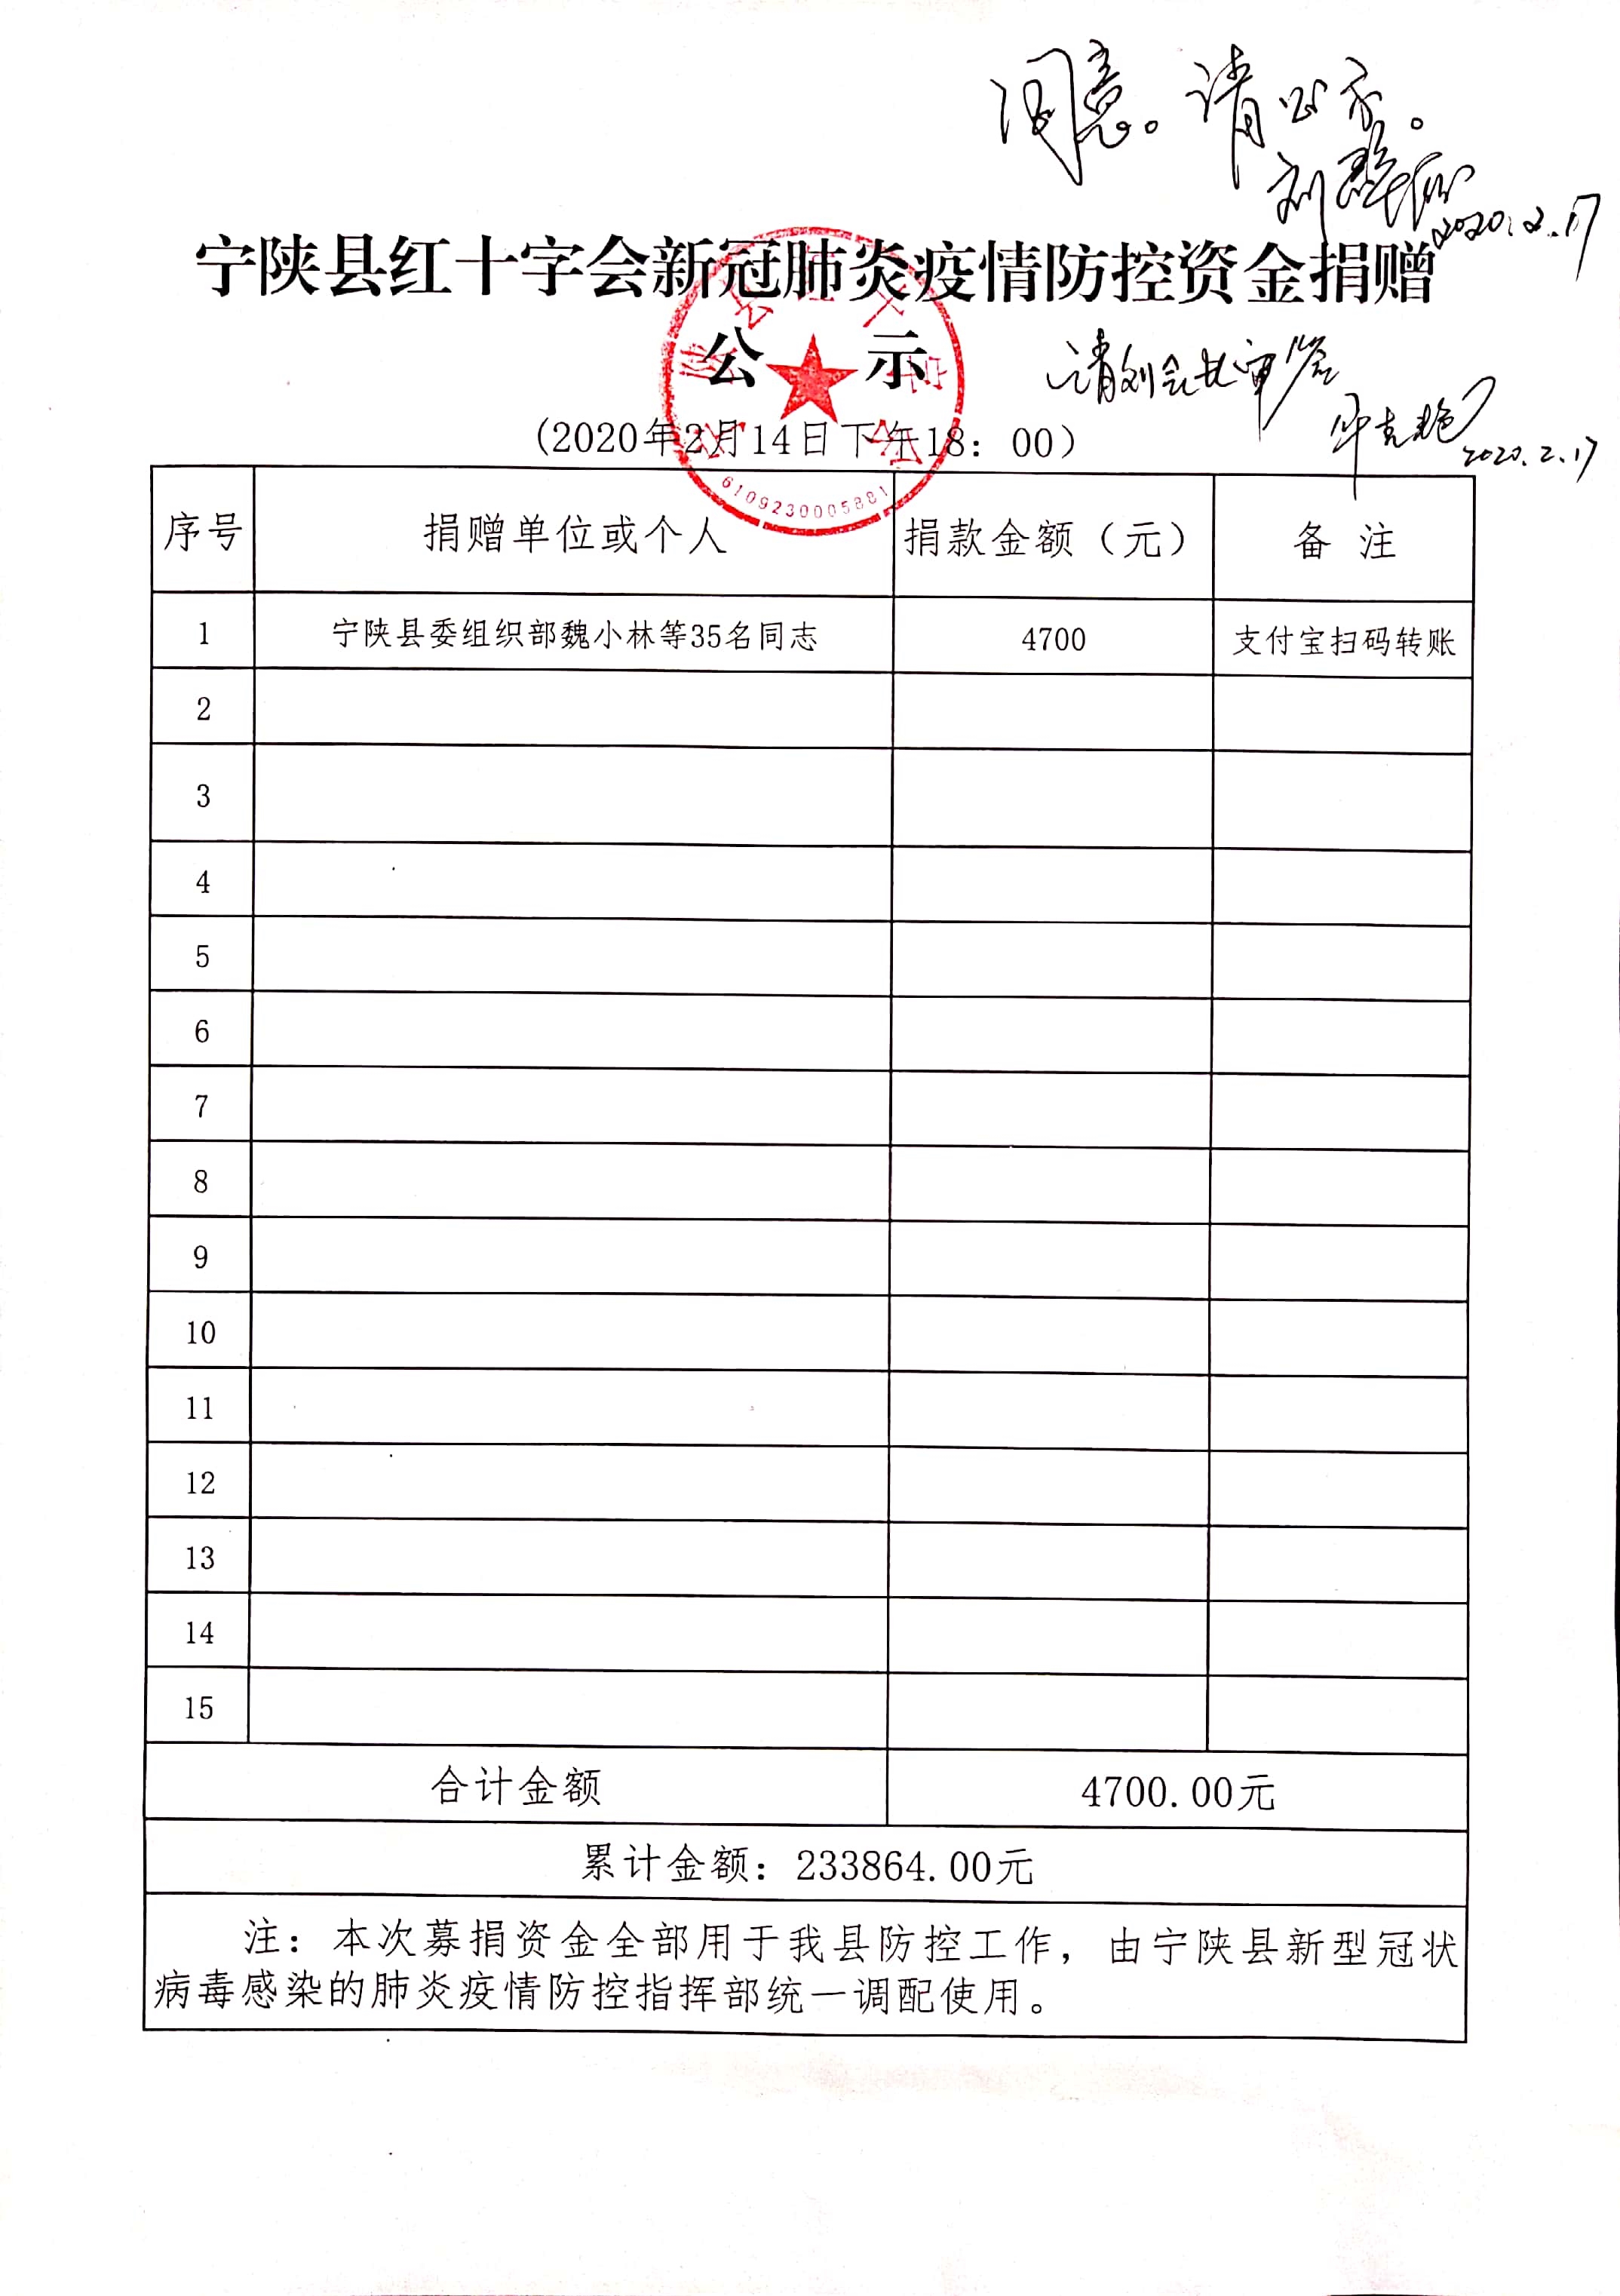 同意。请公示。
2020.2.17
宁陕县红十字会新冠肺炎疫情防控资金捐赠
公 示
请刘会长审签
2020.2.17
(2020年2月14日下午18：00)
6109230005881
序号 捐赠单位或个人 捐款金额（元） 备 注
1 宁陕县委组织部魏小林等35名同志 4700 支付宝扫码转账
2
3
4
5
6
7
8
9
10
11
12
13
14
15
合计金额 4700.00元
累计金额：233864.00元
注：本次募捐资金全部用于我县防控工作，由宁陕县新型冠状
病毒感染的肺炎疫情防控指挥部统一调配使用。